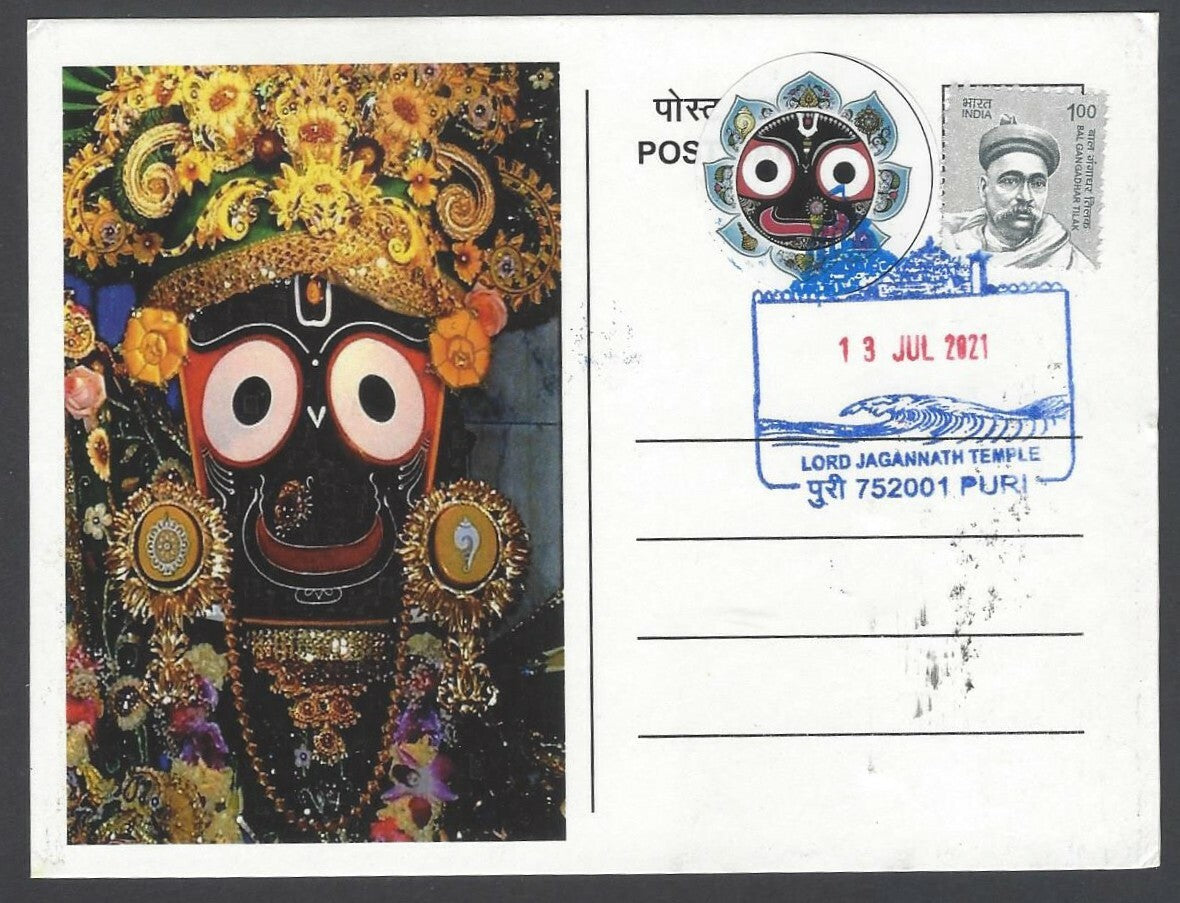 पोस्ट
POS
भारत
INDIA
1.00
बाल गंगाधर तिलक
BAL GANGADHAR TILAK
13 JUL 2021
LORD JAGANNATH TEMPLE
पुरी 752001 PURI